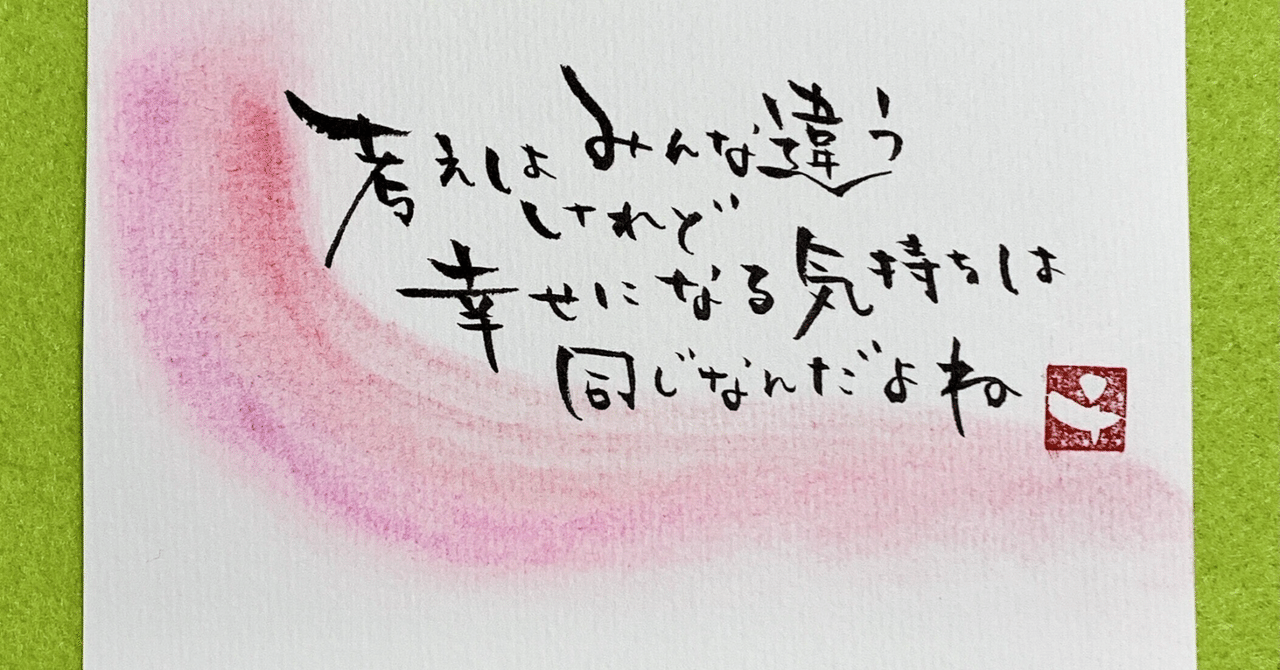 考えは みんな違う
けれど
幸せになる気持ちは
同じなんだよね